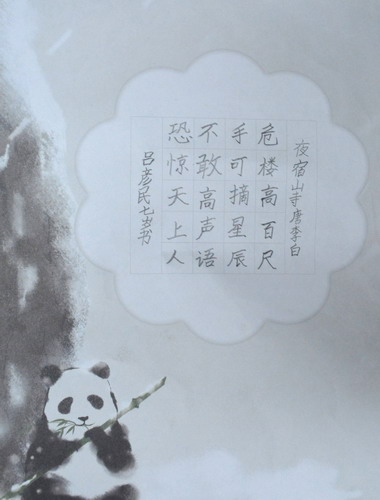 夜宿山寺唐李白
危楼高百尺
手可摘星辰
不敢高声语
恐惊天上人
吕彦民七岁书